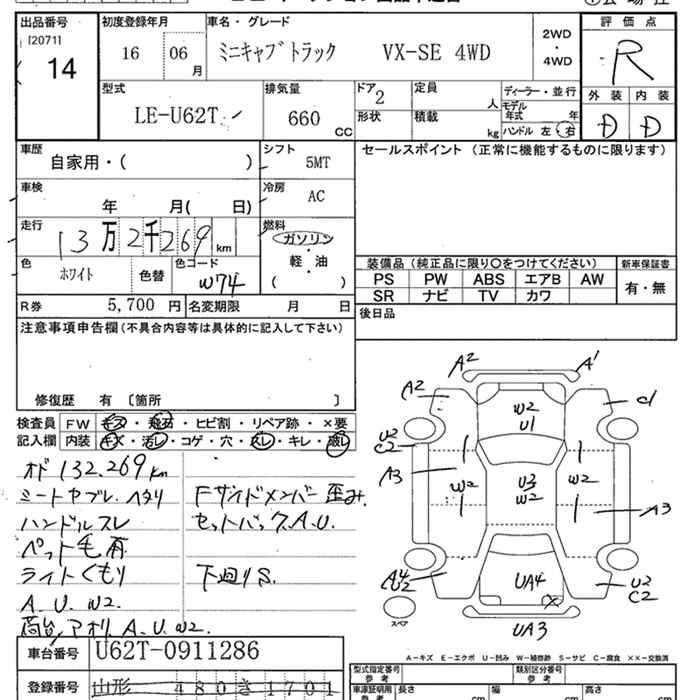 出品番号
[2071]
14
初度登録年月
16 06 月
車名・グレード
ミニキャブトラック VX-SE 4WD
2WD
・
4WD
評価点
R
型式
LE-U62T
排気量
660 CC
ドア
2
形状
定員
人
積載
kg
ディーラー・並行
モデル
年式 年
ハンドル 左・右
外装 内装
D D
車歴
自家用・( )
シフト
5MT
セールスポイント (正常に機能するものに限ります)
車検
年 月( 日)
冷房
AC
走行
13万2千269 km
燃料
ガソリン
軽・油
( )
色
ホワイト
色替
色コード
W74
装備品(純正品に限り○をつけてください)
新車保証書
PS PW ABS エアB AW
SR ナビ TV カワ
有・無
R券 5,700 円
名変期限 月 日
後日品
注意事項申告欄(不具合内容等は具体的に記入して下さい)
修復歴 有 〔箇所 〕
検査員
記入欄
FW キズ・飛石・ヒビ割・リペア跡・×要
内装 キズ・汚レ・コゲ・穴・スレ・キレ・破レ
オド 132,269km
シートヤブレ.ヘタリ
ハンドルスレ
ペット毛有
ライトくもり
A.U.W2.
荷台/アオリ A.U.W2.
Fサイドメンバー歪み.
セットバック.A.U.
下廻りS.
A2
A1
A2
W2
U1
U2
C2
A3
W2
U3
W2
W2
A3
A4
U2
UA4
U2
C2
UA3
スペア
A-キズ E-エクボ U-凹み W-補修跡 S-サビ C-腐食 ××-交換済
車台番号 U62T-0911286
登録番号 山形 480 き 1701
型式指定番号
参考
類別区分番号
参考
車庫証明用
長さ
幅
高さ